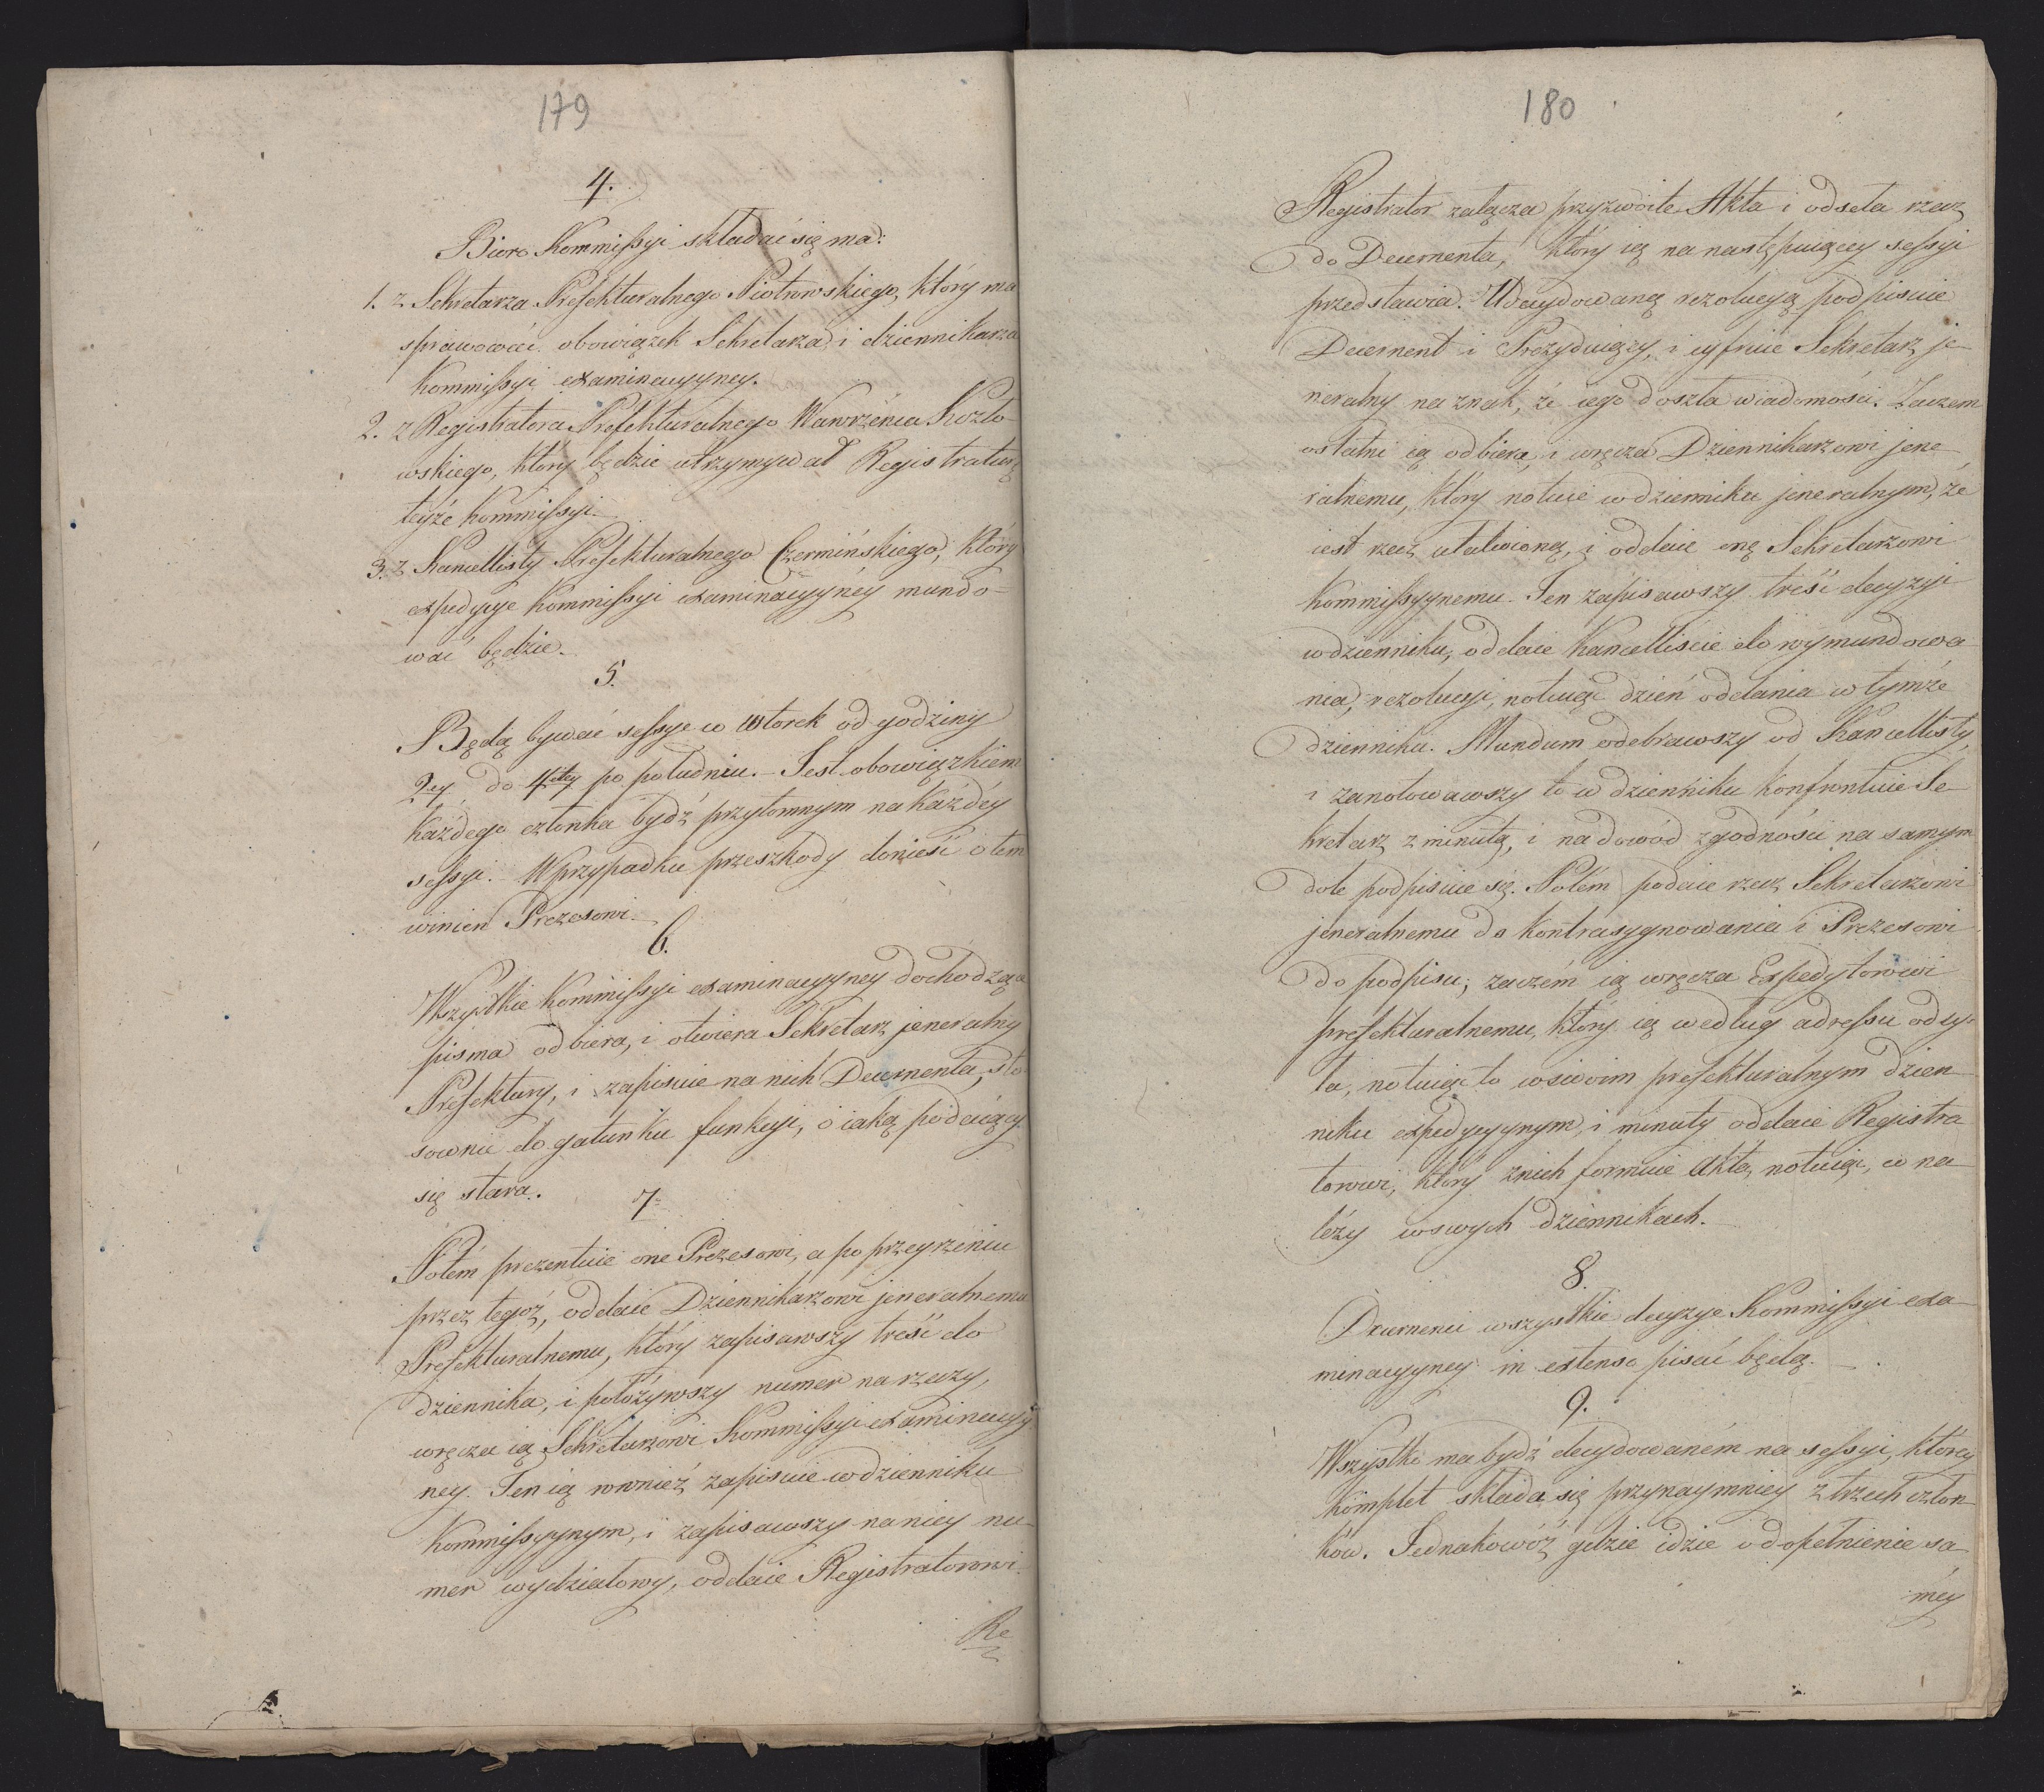 179
4.
Biuro Kommissyi składać się ma:
1. z Sekretarza Prefekturalnego Piotrowskiego, który ma
sprawować obowiązek Sekretarza, i dziennikarza
Kommissyi examinacyyney.
2. z Registratora Prefekturalnego Wawrzeńca Kozło-
wskiego, który będzie utrzymywał Registraturę
teyże Kommissyi.
3. z Kancellisty Prefekturalnego Czermińskiego, który
expedycye Kommissyi examinacyynéy mundo-
wać będzie.
5.
Będą bywać sessye w wtorek od godziny
2ey do 4tey po południu. – Jest obowiązkiem
każdego członka bydź przytomnym na każdéy
sessyi. W przypadku przeszkody donieść o tem
winien Prezesowi.
6.
Wszystkie Kommissyi examinacyyney dochodzące
pisma odbiera, i otwiera Sekretarz jeneralny
Prefektury, i zapisuie na nich Decernenta, sto-
sownie do gatunku funkcyi, o iaką podaiący
się stara.
7.
Potém prezentuie one Prezesowi, a po przeyrzeniu
przez tegoż, oddaie Dziennikarzowi jeneralnemu
Prefekturalnemu, który zapisawszy treść do
dziennika, i położywszy numer na rzeczy,
wręcza ią Sekretarzowi Kommissyi examinacyy
ney. Ten ią rownież zapisuie w dzienniku
Kommissyynym, i zapisawszy na niey nu-
mer wydziałowy, oddaie Registratorowi.
Re
180
Registrator załącza przyzwoite Akta i odseła rzecz
do Decernenta, który ią na następuiącey sessyi
przedstawia. Udecydowaną rezolucyą podpisuie
Decernent i Prezyduiący, i cyfruie Sekretarz je-
neralny na znak, że iego doszła wiadomości. Zaczem
ostatni ią odbiera, i wręcza Dziennikarzowi jene
ralnemu, który notuie w dzienniku jeneralnym, że
iest rzecz ułatwioną, i oddaie onę Sekretarzowi
Kommissyynemu. Ten zapisawszy treść decyzyi
w dzienniku, oddaie Kancelliscie do wymundowa
nia, rezolucyi, notuiąc dzień oddania w tymże
dzienniku. Mundum odebrawszy od Kancellisty,
i zanotowawszy to w dzienniku konfrontuie Se-
kretarz z minutą, i na dowód zgodności na samym
dole podpisuie się. Potém podaie rzecz Sekretarzowi
jeneralnemu do kontrasygnowania i Prezesowi
do podpisu; zaczém ią wręcza Expedytorowi
prefekturalnemu, który ią według adressu odsy-
ła, notuiąc to w swoim prefekturalnym dzien
niku expedycyynym, i minuty oddaie Registra
torowi, który z nich formuie Akta, notuiąc, co na
leży w swych dziennikach.
8.
Decernenci wszystkie decyzye Kommissyi exa
minacyyney in extenso pisać będą.
9.
Wszystko ma bydź decydowaném na sessyi, którey
komplet składa się przynaymniey z trzech człon
ków. Jednakowoż gdzie idzie o dopełnienie sa
méy